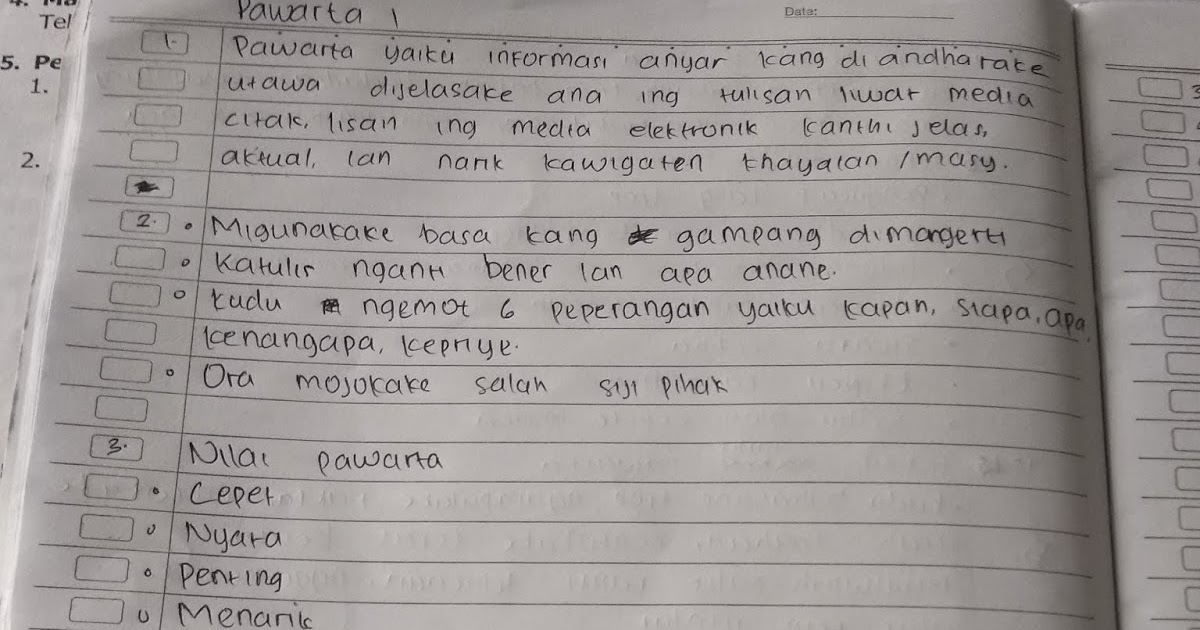 Tel
5. Pe
1.
2.
Date:
Pawarta 1
1. Pawarta yaiku informasi anyar kang di andharake
utawa dijelasake ana ing tulisan liwat media
citak, lisan ing media elektronik kanthi jelas,
aktual, lan narik kawigaten khayalan / masy.
2. • Migunakake basa kang gampang dimangerti
• Katulis nganti bener lan apa anane.
• kudu ngemot 6 peperangan yaiku kapan, siapa, apa,
kenangapa, kepriye.
• Ora mojokake salah siji pihak
3. Nilai pawarta
• Cepet
• Nyata
• Penting
• Menarik